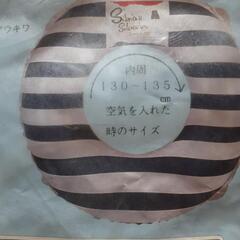 ウキワ
内周
130～135
cm
空気を入れた
時のサイズ